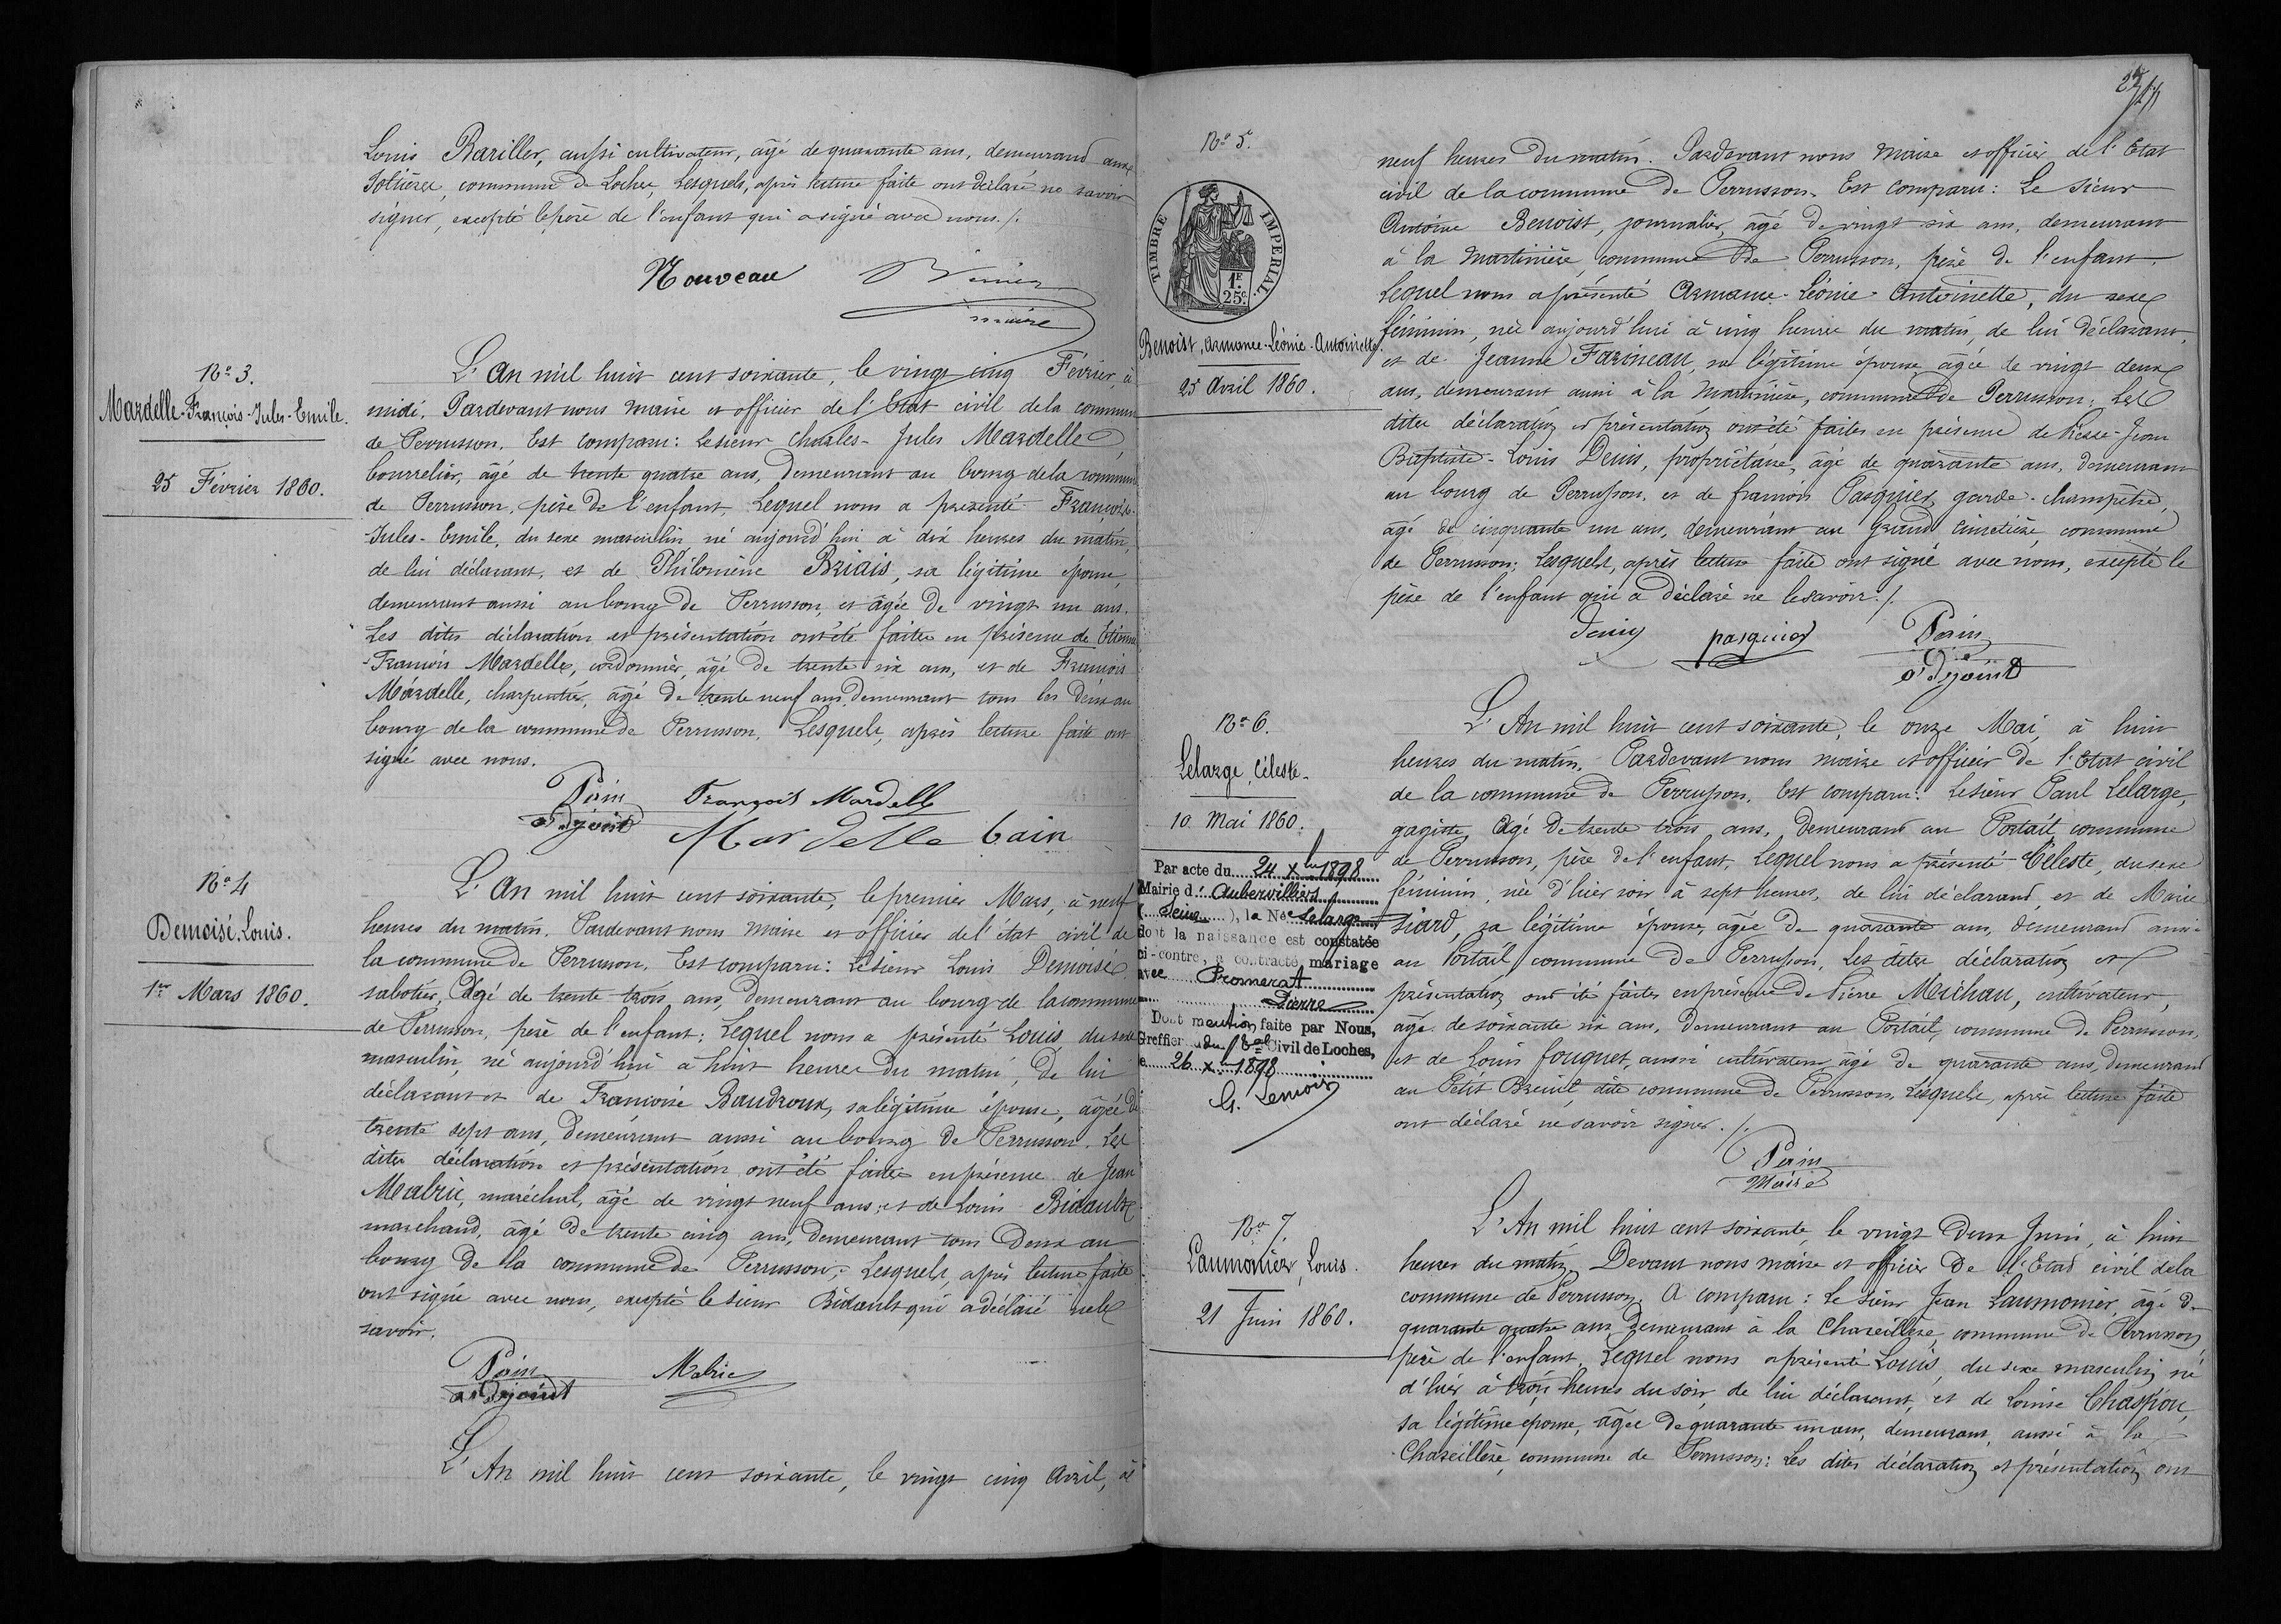 Louis Bariller, aussi cultivateur, âgé de quarante ans, demeurand aux
commune de Loches, Lesquels, après lecture faite ont déclaré ne savoir
signer, excepté le père de l'enfant qui a signé avec nous ./.
Nouveau
maire
N° 3.
Mardelle François-Jules-Emile.
25 Février 1860.
L'An mil huit cent soixante, le vingt cinq Février, à
midi. Pardevant nous maire et officier de l'Etat civil de la commune
de Perrusson. Est comparu: Le sieur Charles-Jules Mardelle,
bourrelier, âgé de trente quatre ans, demeurant au bourg de la commune
de Perrusson, père de l'enfant, Lequel nous a présenté François-
-Jules-Emile, du sexe masculin né aujourd'hui à dix heures du matin,
de lui déclarant, et de Philomène Briais, sa légitime épouse,
demeurant aussi au bourg de Perrusson, et âgée de vingt un ans.
Les dites déclaration et présentation ont été faites en présence de Etienne
-François Mardelle, cordonnier, âgé de trente six ans, et de François
Mardelle, charpentier, âgé de trente neuf ans, demeurant tous les deux au
bourg de la commune de Perrusson. Lesquels, après lecture faite ont
signé avec nous.
Pain François Mardelle
adjoint Mardelle Cain
N° 4
Demoisé, Louis.
1er Mars 1860.
L'An mil huit cent soixante, le premier Mars, à neuf
heures du matin. Pardevant nous maire et officier de l'état civil de
la commune de Perrusson. Est comparu: Le sieur Louis Demoisé
sabotier, âgé de trente trois ans, demeurant au bourg de la commune
de Perrusson, père de l'enfant; Lequel nous a présenté Louis, du sexe
masculin, né aujourd'hui à huit heures du matin, de lui
déclarant et de Françoise Baudroux, sa légitime épouse, âgée de
trente sept ans, demeurant aussi au bourg de Perrusson. Les
dites déclaration et présentation ont été faites en présence de Jean
Mabric, maréchal, âgé de vingt neuf ans, et de Louis Bidault
marchand, âgé de trente cinq ans, demeurant tous deux au
bourg de la commune de Perrusson; Lesquels, après lecture faite
ont signé avec nous, excepté le sieur Bidault qui a déclaré ne le
savoir.
Pain Mabric
adjoint
L'An mil huit cent soixante, le vingt cinq Avril, à
N° 5.
TIMBRE IMPERIAL.
1F.
25c.
Benoist, Armance-Léonie-Antoinette.
25 Avril 1860.
neuf heures du matin. Pardevant nous Maire et officier de l'Etat
civil de la commune de Perrusson. Est comparu: Le sieur
Antoine Benoist, journalier, âgé de vingt six ans, demeurant
à la Martinière, commune de Perrusson, père de l'enfant.
Lequel nous a présenté Armance-Léonie-Antoinette, du sexe
féminin, née aujourd'hui à cinq heures du matin, de lui déclarant,
et de Jeanne Farineau, sa légitime épouse, âgée de vingt deux
ans, demeurant aussi à la Martinière, commune de Perrusson; Les
dites déclaration et présentation ont été faites en présence de Pierre-Jean
Baptiste-Louis Denis, propriétaire, âgé de quarante ans, demeurant
au bourg de Perrusson, et de François Pasquier, garde-champêtre,
âgé de cinquante un ans, demeurant au Grand Cimetière, commune
de Perrusson; Lesquels, après lecture faite ont signé avec nous, excepté le
père de l'enfant qui a déclaré ne le savoir ./.
Denis pasquier Pain
adjoint
N° 6.
Lelarge, Céleste.
10 Mai 1860.
Par acte du 24 Xbre 1898
Mairie d'Aubervilliers
(Seine), la Née Lelarge
dont la naissance est constatée
ci-contre, a contracté mariage
avec Promerat
Pierre
Dont mention faite par Nous,
Greffier du Tbal Civil de Loches,
le 26 Xbre 1898
G. Lenoir
L'An mil huit cent soixante, le onze Mai, à huit
heures du matin. Pardevant nous maire et officier de l'Etat civil
de la commune de Perrusson. Est comparu: Le sieur Paul Lelarge,
gagiste, âgé de trente trois ans, demeurant au Portail, commune
de Perrusson, père de l'enfant, Lequel nous a présenté Céleste, du sexe
féminin, née d'hier soir à sept heures, de lui déclarant, et de Marie
Siard, sa légitime épouse, âgée de quarante ans, demeurant aussi
au Portail, commune de Perrusson. Les dites déclaration et
présentation ont été faites en présence de Pierre Michau, cultivateur,
âgé de soixante six ans, demeurant au Portail, commune de Perrusson,
et de Louis Fouquet, aussi cultivateur, âgé de quarante ans, demeurant
au Petit Breuil, dite commune de Perrusson, Lesquels, après lecture faite
ont déclaré ne savoir signer ./.
Pain
Maire
N° 7.
Laumonier, Louis.
21 Juin 1860.
L'An mil huit cent soixante, le vingt deux Juin, à huit
heures du matin. Devant nous maire et officier de l'Etat civil de la
commune de Perrusson. A comparu: Le sieur Jean Laumonier, âgé de
quarante quatre ans, demeurant à la Chareillère, commune de Perrusson,
père de l'enfant. Lequel nous a présenté Louis, du sexe masculin, né
d'hier à trois heures du soir, de lui déclarant, et de Louise Chaspiou,
sa légitime épouse, âgée de quarante un ans, demeurant, aussi à la
Chareillère, commune de Perrusson: Les dites déclaration et présentation ont